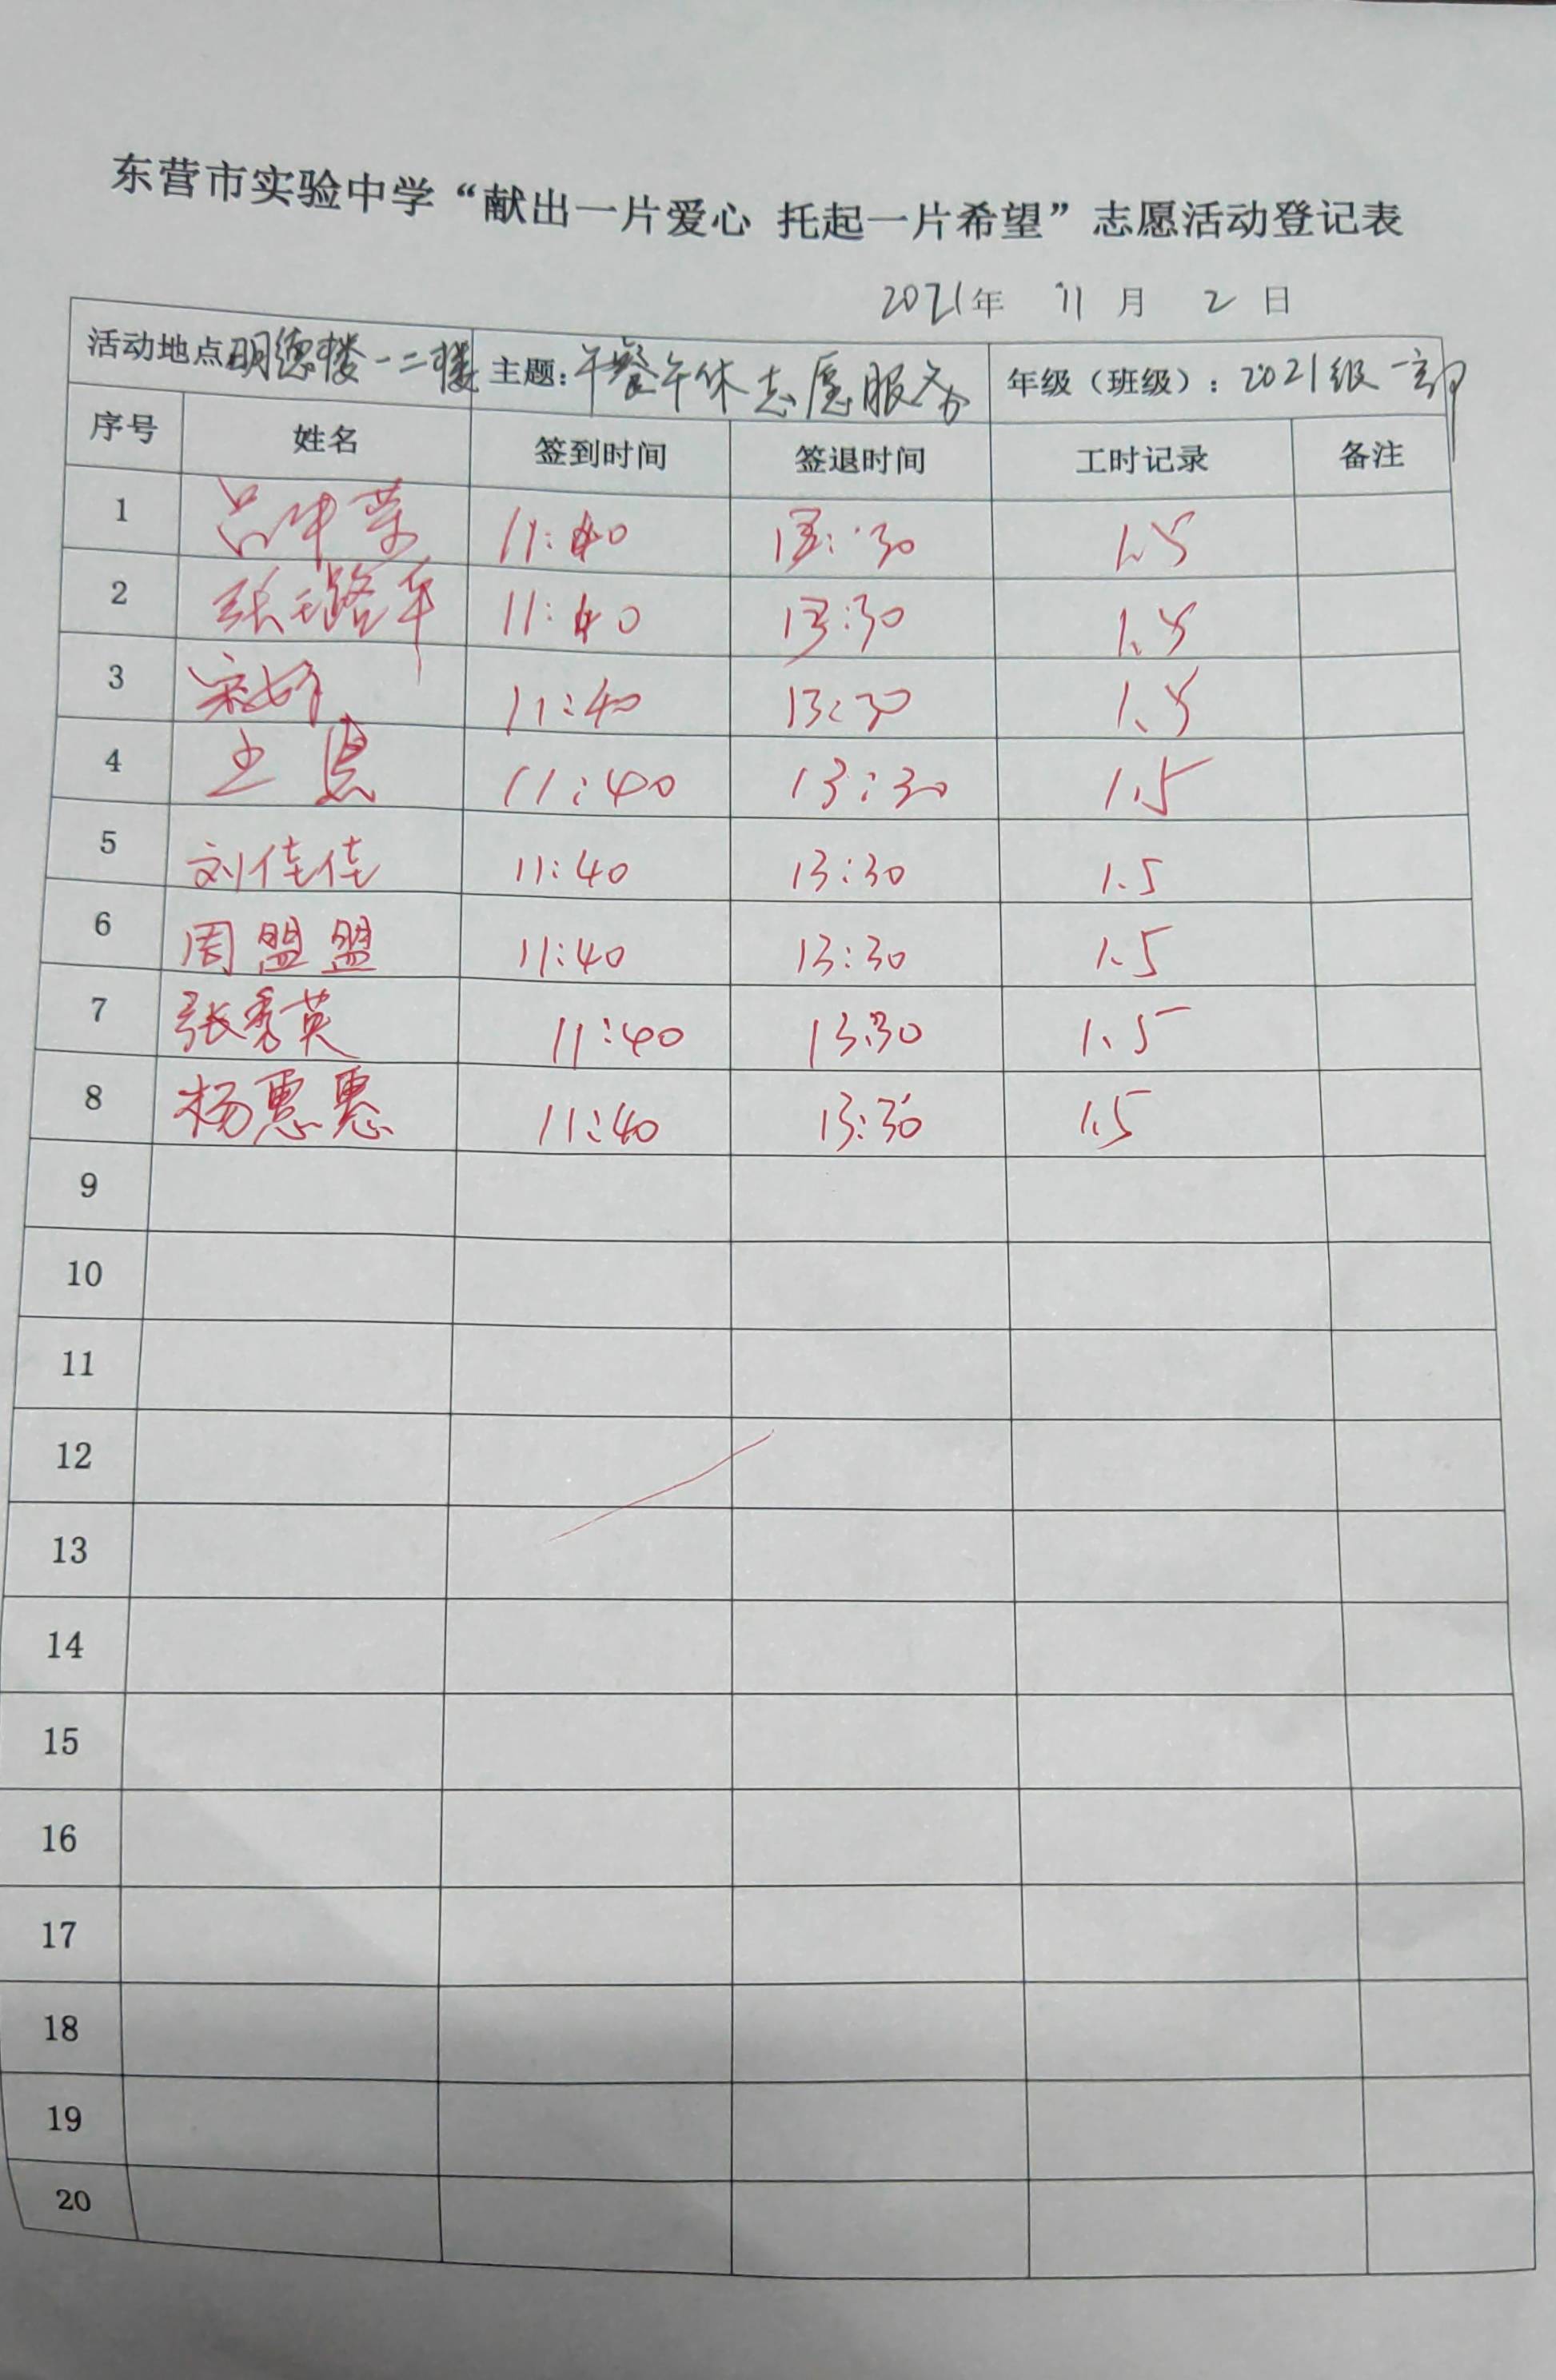 东营市实验中学“献出一片爱心 托起一片希望”志愿活动登记表
2021年 11 月 2 日
活动地点明德楼一二楼 主题：午餐午休志愿服务 年级（班级）：2021级一部
序号 姓名 签到时间 签退时间 工时记录 备注
1 11:40 13:30 1.5
2 张 11:40 13:30 1.5
3 宋 11:40 13:30 1.5
4 王 11:40 13:30 1.5
5 刘佳佳 11:40 13:30 1.5
6 周盟盟 11:40 13:30 1.5
7 张秀英 11:40 13:30 1.5
8 杨惠惠 11:40 13:30 1.5
9
10
11
12
13
14
15
16
17
18
19
20